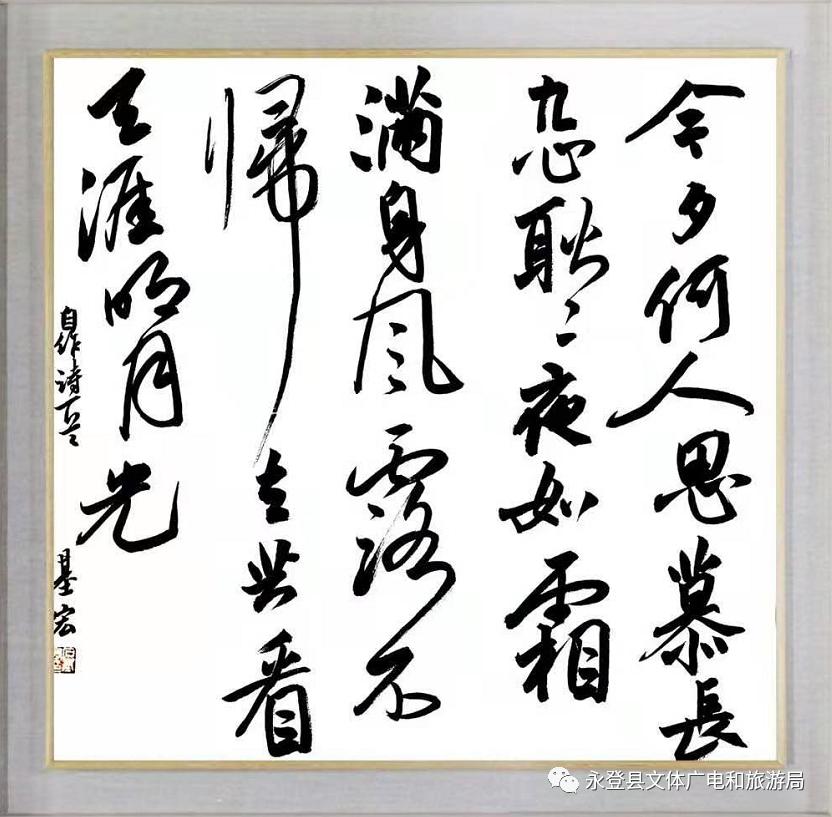 今夕何人思慕長
耿々夜如霜
滿身風露不
歸去共看
天涯明月光
自作詩
基宏
永登县文体广电和旅游局